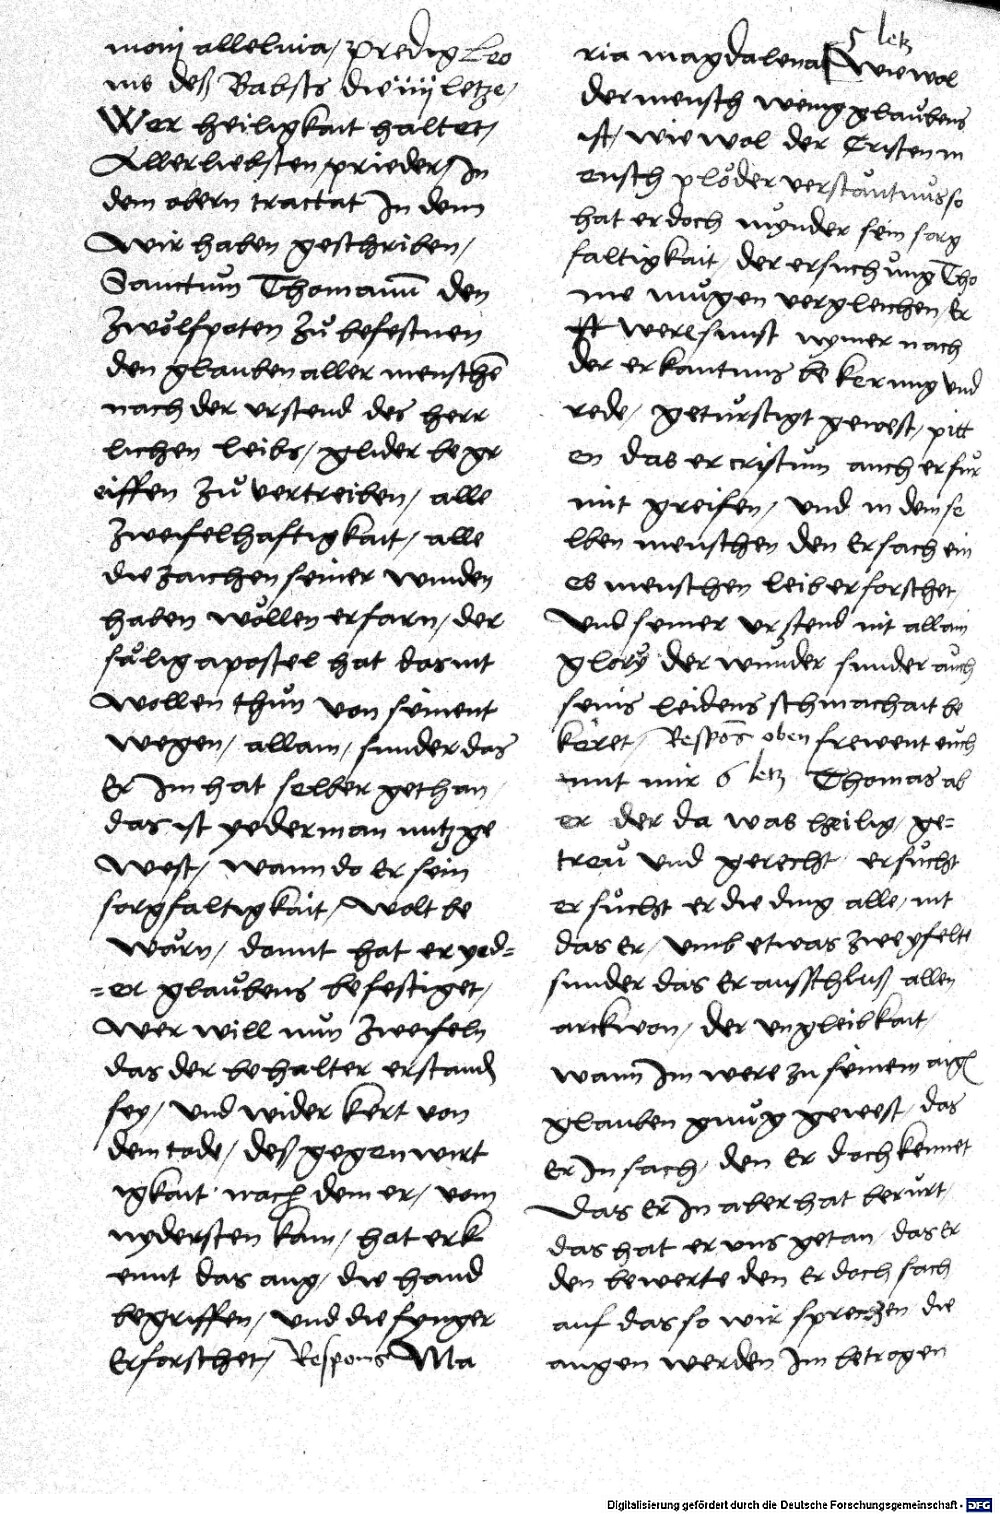 monj alleluia / Predig Leo
nis deß Babsts die iiij letze /
Wer heiligkait haltet /
Allerliebsten prieder / In
dem obern tractat In dem
Wir haben geschriben /
Sanctum Thomanū den
Zwölfpoten zů befestnen
den glauben aller menschē
nach der vrstend des herr
lichen leibs / glider begr
eiffen zů vertreiben / alle
Zweifelhaftigkait / alle
die zaichen seiner wunden
haben wöllen erfarn / der
sälig apostel hat das nit
wollen thůn von seinent
wegen / allain / sunder das
Er Im hat selber gethan
das ist yederman nutz ge
west / wann do er sein
sorgfaltigkait / wolt be
wärn / damit hat er yed=
=er glaůbens befestiget /
wer will nůn zweifeln
das der behalter erstand
sey / vnd wider kert von
dem tode / deß gegenwirt
igkait nach dem er / vom
nydersten kam / hat erk
ennt das aug / die hand
begriffen / vnd die fynger
Erforschet / Respons Ma
ria magdalena 5 letz Wiewol
der mensch wenig glaůbens
ist / wie wol der Cristen m
ensch plöder verstäntnůs so
hat er doch mynder sein sorg
faltigkait / der ersuchůng Tho
me můgen vergleichen / Er
were sunst nymer nach
der erkantnus bekerung vnd
rede / getůrstigt gewest / pitt
en das er cristům auch er fůr
mit greifen / vnd in dem se
lben menschen den Er sach ein
es menschen leib erforschet /
Vnd seiner vrstend nit allain
glory der wunder sunder aůch
seins leidens schmachait be
keret / Respons oben frewent eůch
mit mir 6 letz Thomas ab
er der da was heilig / ge=
treů vnd gerecht ersůcht
ersůcht er die ding alle / nit
das Er / vmb etwas zweyfelte
sunder das Er ausschluß allen
arckwon / der vngleibkait /
wann Im were zu seinem aigē
glauben gnůg gewest / das
Er In sach / den Er doch kennet
Das Er In aber hat berůrt /
das hat er vns getan / das er
den bewerte den Er doch sach
auf das so wir sprechen die
augen werden Im betrogen
Digitalisierung gefördert durch die Deutsche Forschungsgemeinschaft - DFG